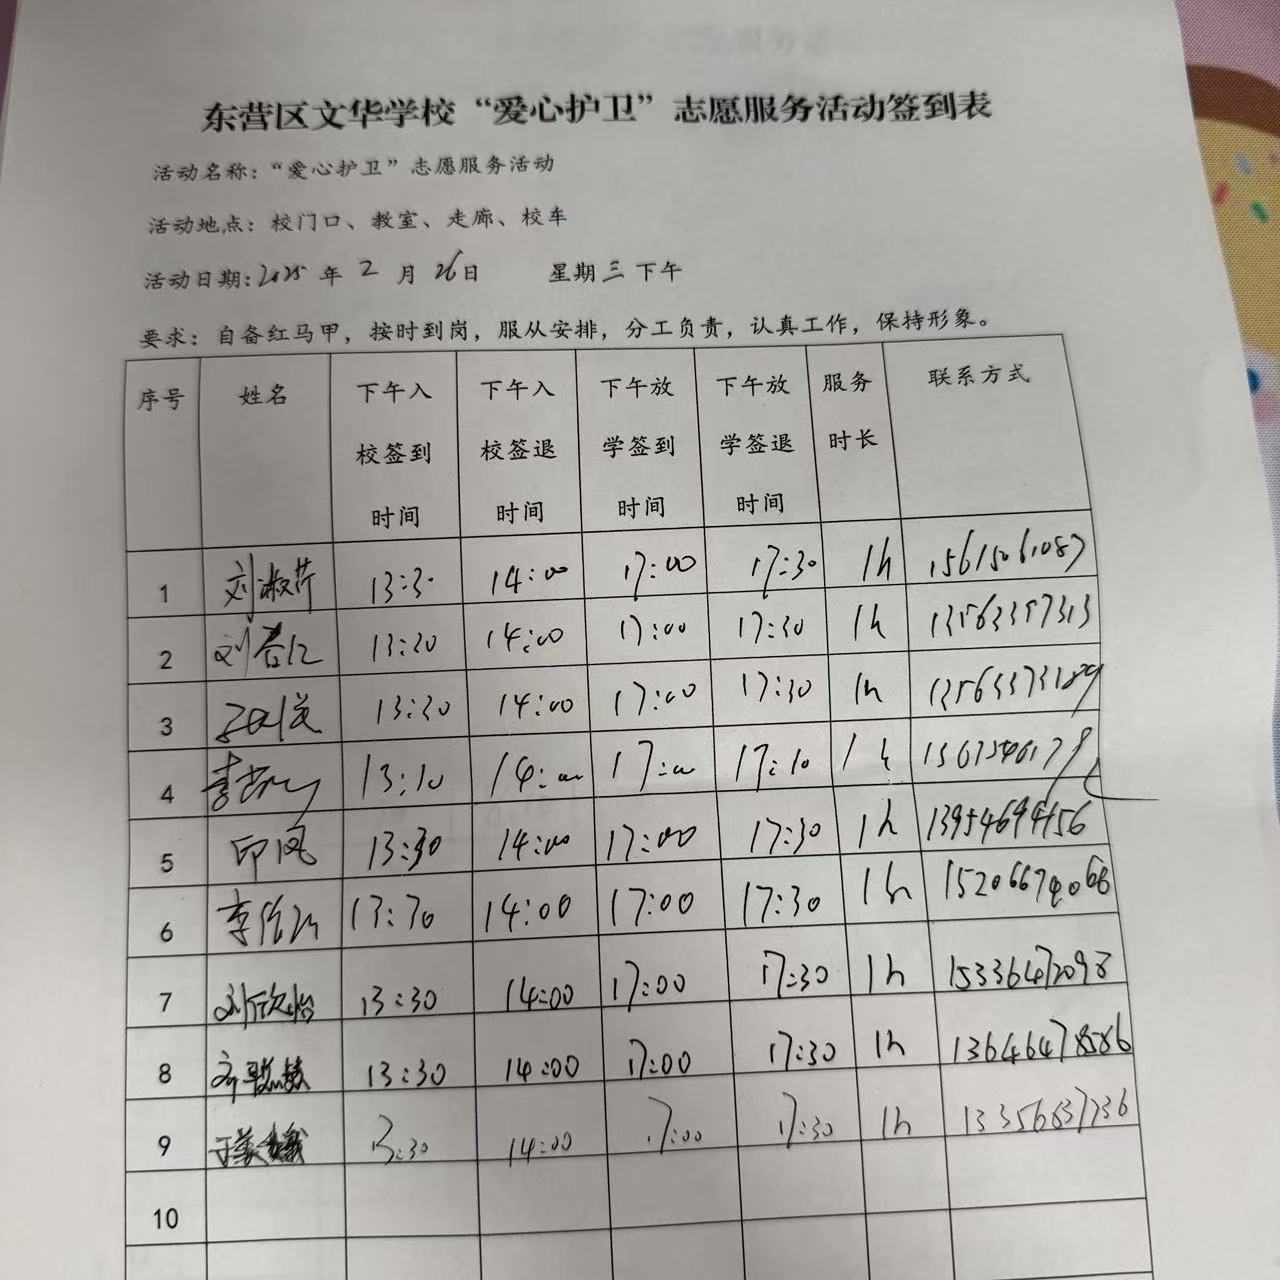 东营区文华学校“爱心护卫”志愿服务活动签到表
活动名称：“爱心护卫”志愿服务活动
活动地点：校门口、教室、走廊、校车
活动日期：2025 年 2 月 26日 星期三下午
要求：自备红马甲，按时到岗，服从安排，分工负责，认真工作，保持形象。
序号 姓名 下午入校签到时间 下午入校签退时间 下午放学签到时间 下午放学签退时间 服务时长 联系方式
1 刘淑芹 13:30 14:00 17:00 17:30 1h 15615061087
2 13:30 14:00 17:00 17:30 1h 13563357313
3 13:30 14:00 17:00 17:30 1h
4 13:10 14:00 17:00 17:10 1h
5 印凤 13:30 14:00 17:00 17:30 1h 13954694456
6 13:30 14:00 17:00 17:30 1h 15206674068
7 刘欣怡 13:30 14:00 17:00 17:30 1h 15336472098
8 13:30 14:00 17:00 17:30 1h 13646478586
9 13:30 14:00 17:00 17:30 1h 13356637736
10